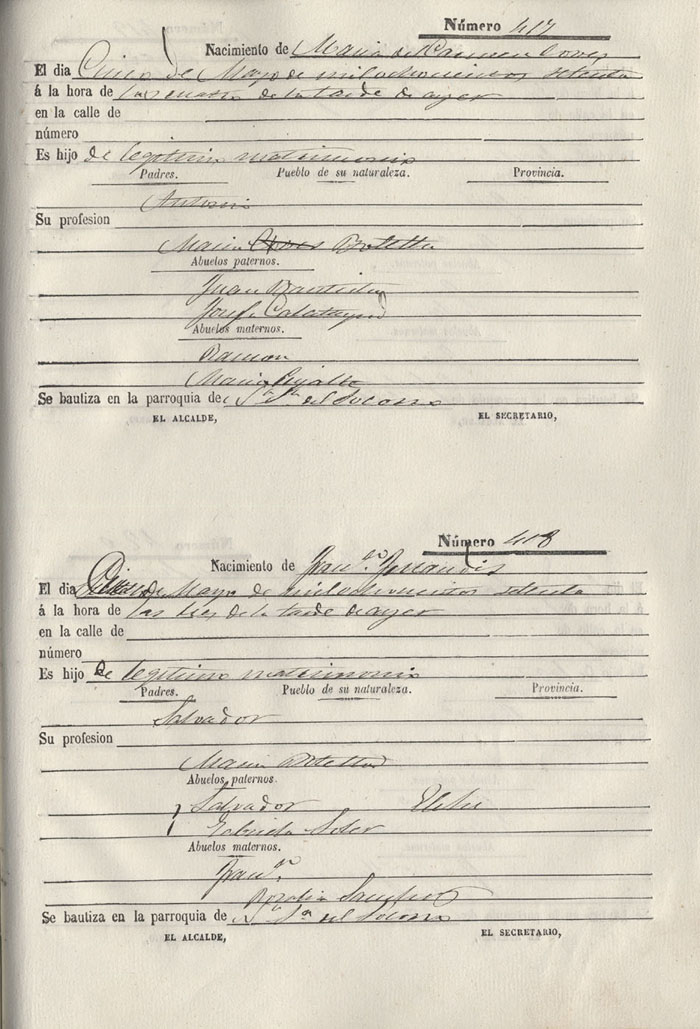 Número 417
Nacimiento de Maria del Carmen
El dia Cinco de Mayo de mil ochocientos setenta
á la hora de las cuatro de la tarde de ayer
en la calle de
número
Es hijo de legitimo matrimonio
Padres. Pueblo de su naturaleza. Provincia.
Antonio
Su profesion
Maria Botella
Abuelos paternos.
Juan Bautista
Josefa Calatayud
Abuelos maternos.
Ramon
Maria
Se bautiza en la parroquia de Sta. Ma. del Socorro
EL ALCALDE, EL SECRETARIO,
Número 418
Nacimiento de Franco. Ferrandis
El dia Cinco de Mayo de mil ochocientos setenta
á la hora de las tres de la tarde de ayer
en la calle de
número
Es hijo de legitimo matrimonio
Padres. Pueblo de su naturaleza. Provincia.
Salvador
Su profesion
Maria Botella
Abuelos paternos.
Salvador Elche
Gabriela Soler
Abuelos maternos.
Franco.
Rosalia Sanchez
Se bautiza en la parroquia de Sta. Ma. del Socorro
EL ALCALDE, EL SECRETARIO,